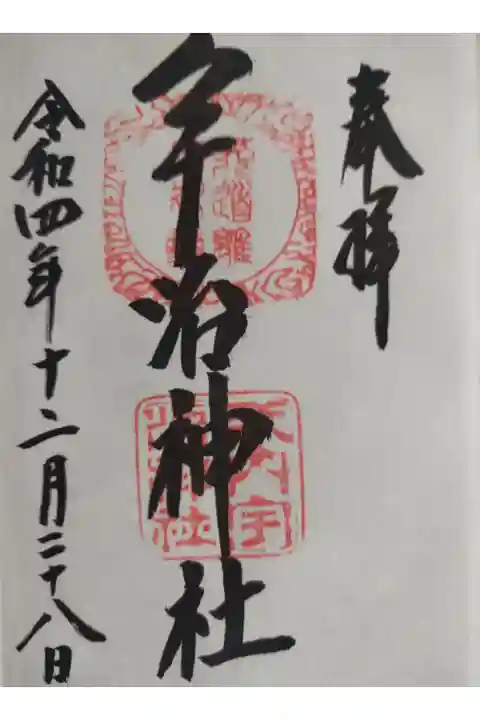 奉拝
宇治神社
令和四年十二月二十八日